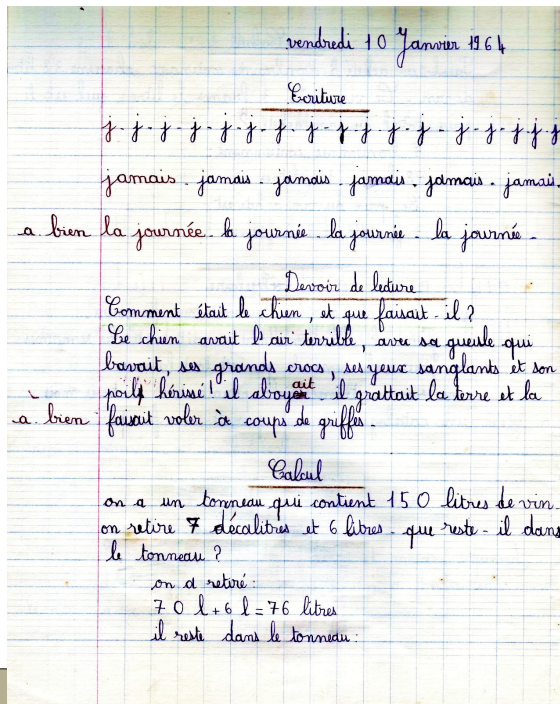 vendredi 10 Janvier 1964
Ecriture
j - j - j - j - j - j - j - j - j - j - j - j - j - j - j - j
jamais - jamais - jamais - jamais - jamais - jamais.
a bien la journée - la journée - la journée - la journée -
Devoir de lecture
Comment était le chien, et que faisait-il ?
Le chien avait l'air terrible, avec sa gueule qui
bavait, ses grands crocs, ses yeux sanglants et son
poil hérissé ! il aboyait - il grattait la terre et la
à bien faisait voler à coups de griffes -
Calcul
on a un tonneau qui contient 150 litres de vin -
on retire 7 décalitres et 6 litres - que reste-il dans
le tonneau ?
on a retiré :
70 l + 6 l = 76 litres
il reste dans le tonneau :